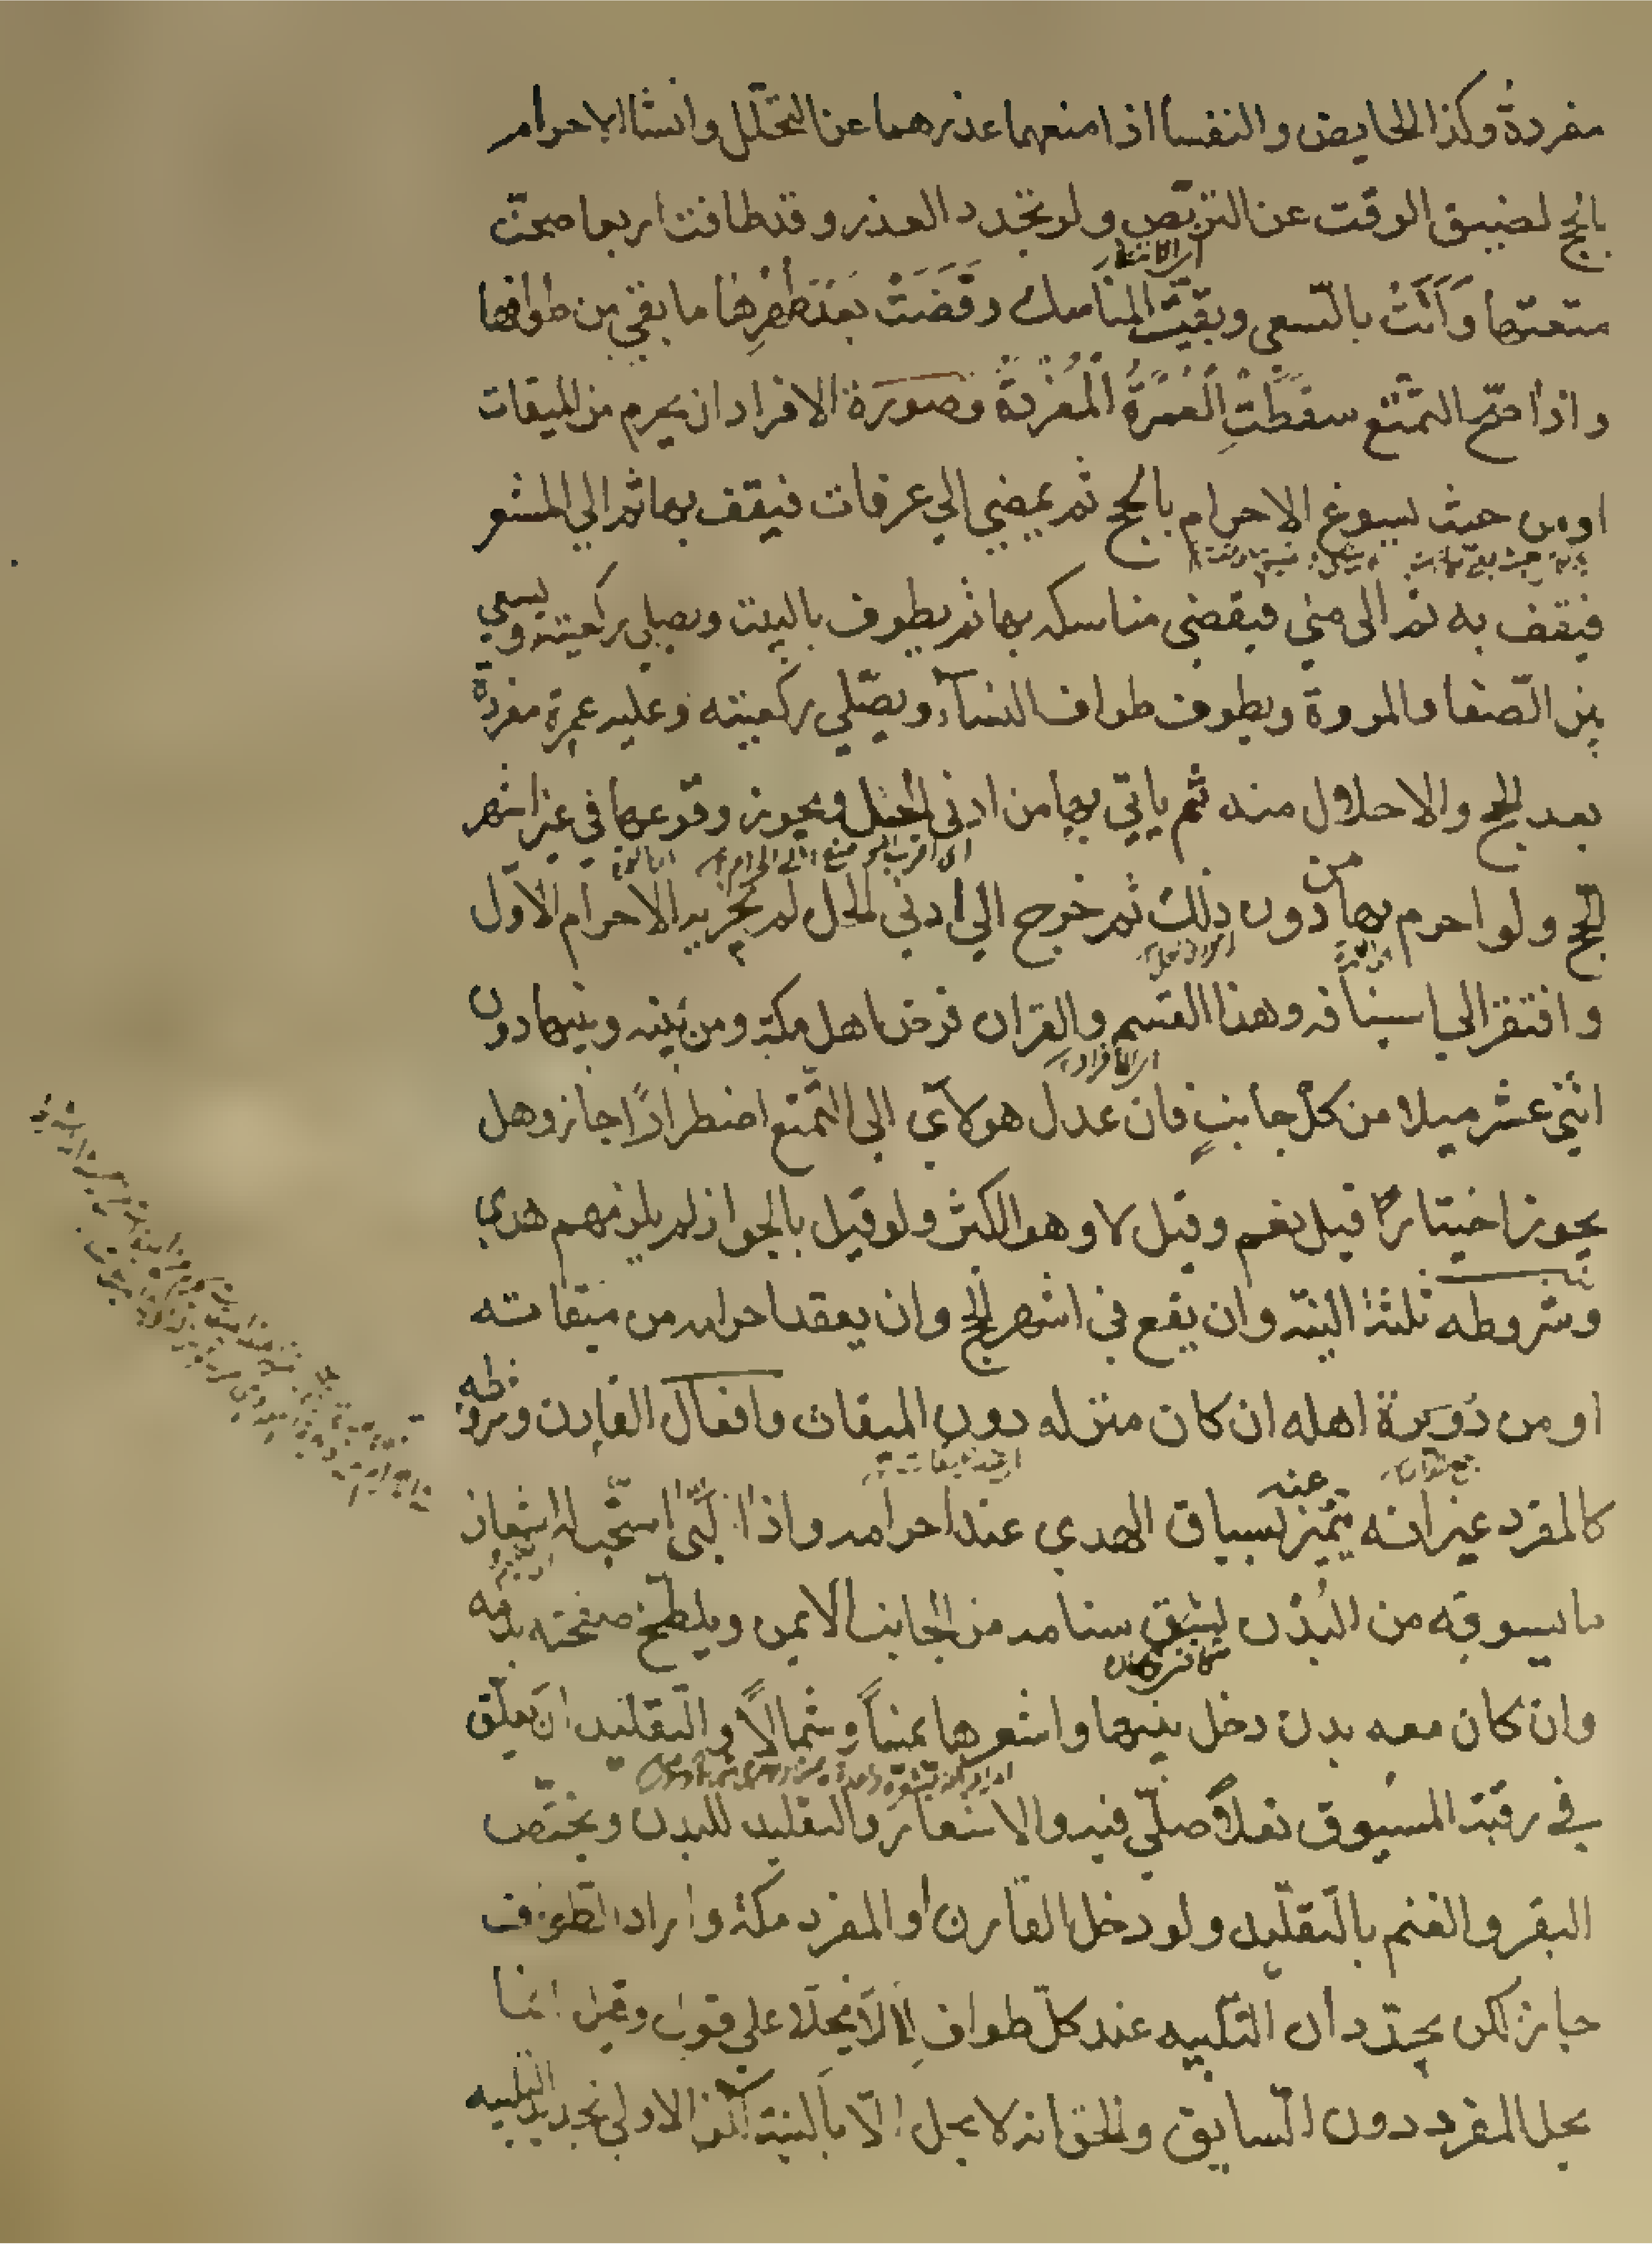 مفردة وكذا الحايض والنفسا اذا منعهما عذرهما عن التحلل وانشا الاحرام
بالحج لضيق الوقت عن التربص ولو تجدد العذر وقد طافت اربعا صحت
اي الانتظار
متعتها وَاَتَتْ بالسعي وبقيّت المناسك وقَضَتْ بعد طُهرِها ما بقي من طوافها
واذا صحّ التمتّع سقطَتِ العُمرَةُ المُفردَةُ وصورة الافراد ان يحرم من الميقات
اومن حيث يسوغ الاحرام بالحج ثم يمضي الى عرفات فيقف بها ثم الي المشعر
فيقف به ثم الى منى فيقضي مناسكه بها ثم يطوف بالبيت ويصلي ركعتيه ويسعي
بين الصّفا والمروة ويطوف طواف النسآء ويصّلي ركعيته وعليه عمرة مفردة
بعد الحج والاحلال منه ثم ياتي بها من ادنى الحل ويجوز وقوعها في غير اشهر
الحج ولو احرم بها من دون ذلك ثم خرج الي ادنى الحل لم يجزيه الاحرام الاّول
وافتقر الي استينافه وهذا القسم والقران فرض اهل مكة ومن بينه وبينها دون
اي الافراد
اثني عشر ميلا من كل جانبٍ فان عدل هولآي الى التمّتع اضطرارًا جاز وهل
يجوز اختيارًا قيل نعم وقيل لا وهو الاكثر ولو قيل بالجواز لم يلزمهم هدي
وشروطه ثلثة النية وان يقع في اشهر الحج وان يعقد احرامه من ميقاته
او من دُوَيرة اهله ان كان منزله دون الميقات وافعال القارن وشروطه
كالمفرد غير انه يتميّز عنه بسياق الهدي عند احرامه واذا لبّى استحّب له اشعار
ما يسوقه من البُدْن يشق سنامه من الجانب الايمن ويلطّخ صفحته بدمه
وان كان معه بدن دخل بينها واشعرها يمينًا وشمالاً والتّقليد ان يعلّق
في رقبة المسوق نعلاً صلّى فيه والاشعار والتقليد للبدن ويختّص
البقر والغنم بالتّقليد ولو دخل القارن او المفرد مكة واراد الطّواف
جايز لكن يجدّدان التّلبيه عند كلّ طواف لئلاّ يحلّا على قول وقيل انما
يحل المفرد دون السّايق والحق انه لا يحل الّا بالنية لكن الاولي تجديد التلبيه